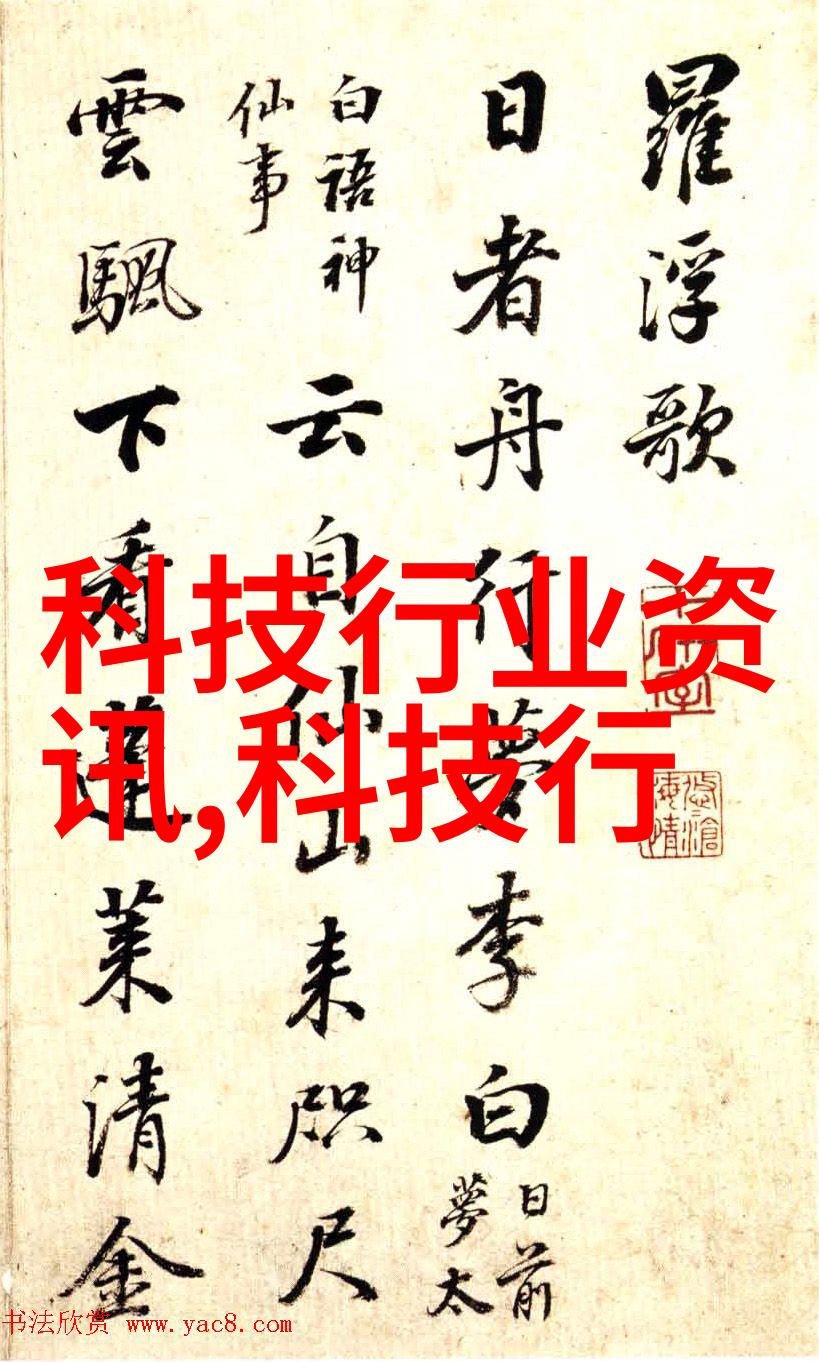 羅浮歌
日者舟行夢李白
日前
夢太
白語神
仙事
云自仙山来咫尺
雲颿下看蓬莱清金
科技行业资
讯,科技行
书法欣赏 www.yac8.com